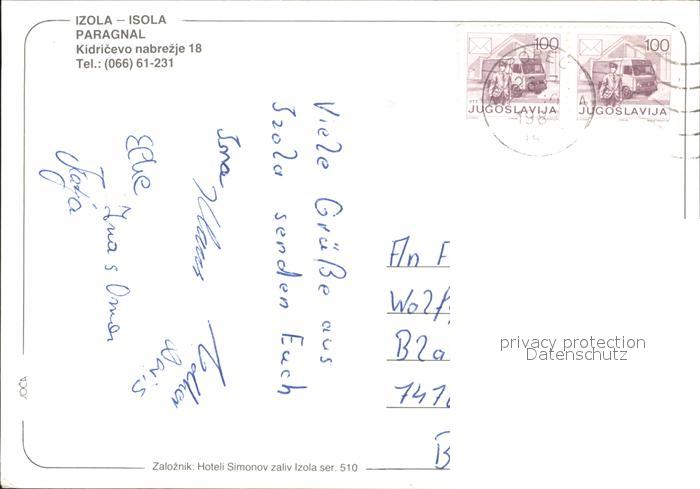 IZOLA – ISOLA
PARAGNAL
Kidričevo nabrežje 18
Tel.: (066) 61-231
100
JUGOSLAVIJA
100
JUGOSLAVIJA
Viele Grüße aus
Izola senden Euch
Ina
Klaus
Elke
Ina s Oma
An F
Wolf
Bla
747
B
privacy protection
Datenschutz
Založnik: Hoteli Simonov zaliv Izola ser. 510